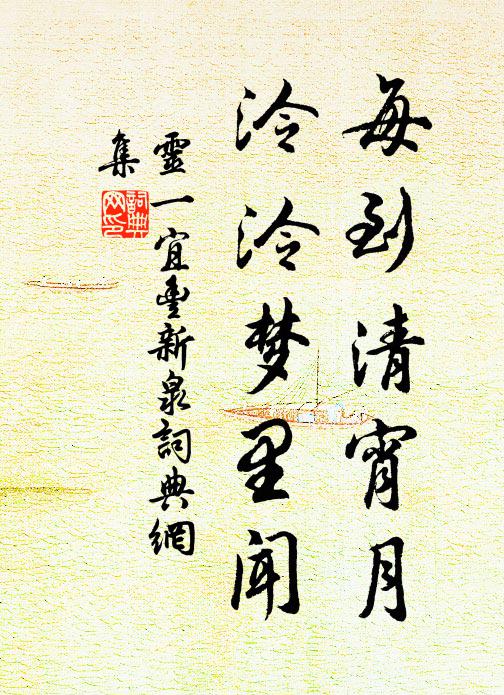 每到清宵月
泠泠梦里闻
靈一宜豐新泉詞典網
集
詞典網印